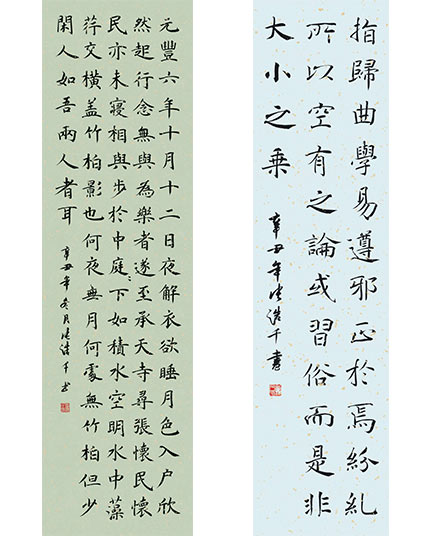 元豐六年十月十二日夜解衣欲睡月色入户欣
然起行念無與為樂者遂至承天寺尋張懷民懷
民亦未寢相與步於中庭下如積水空明水中藻
荇交橫盖竹柏影也何夜無月何處無竹柏但少
閑人如吾兩人者耳
辛丑年冬月千书
指歸曲學易遵邪正於焉紛糺
所以空有之論或習俗而是非
大小之乘
辛丑年千書